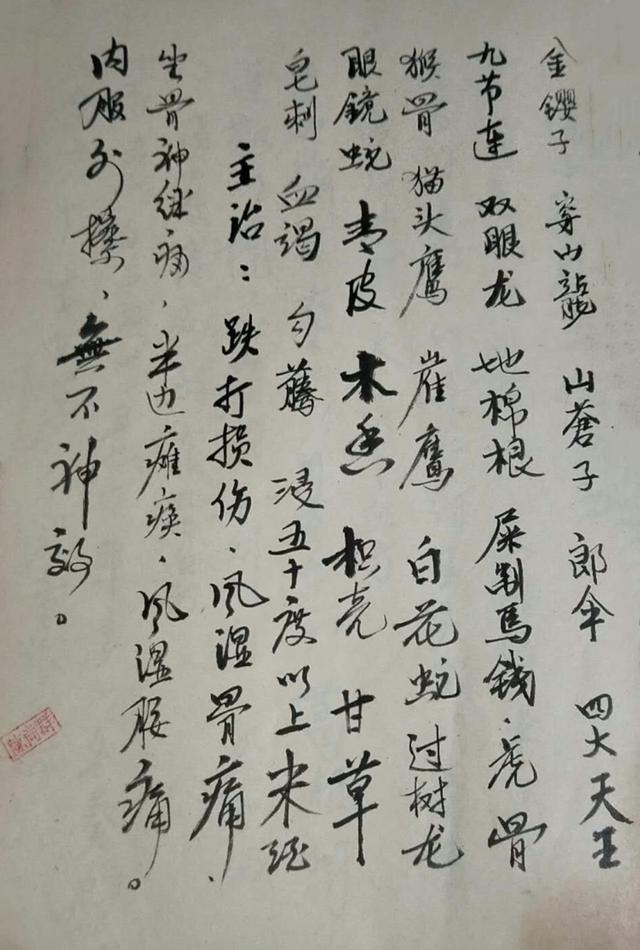 金鑍子 穿山龍 山蒼子 郎伞 四大天王
九节連 双眼龙 地棉根 屎制馬錢、虎骨
猴骨 猫头鹰 崖鹰 白花蛇 过树龙
眼鏡蛇 青皮 木香 枳壳 甘草
皂刺 血竭 勾藤 浸五十度以上米
主治：跌打损伤、风湿骨痛、
坐骨神经痛、半边瘫痪、风湿腰痛。
内服外擦、無不神效。